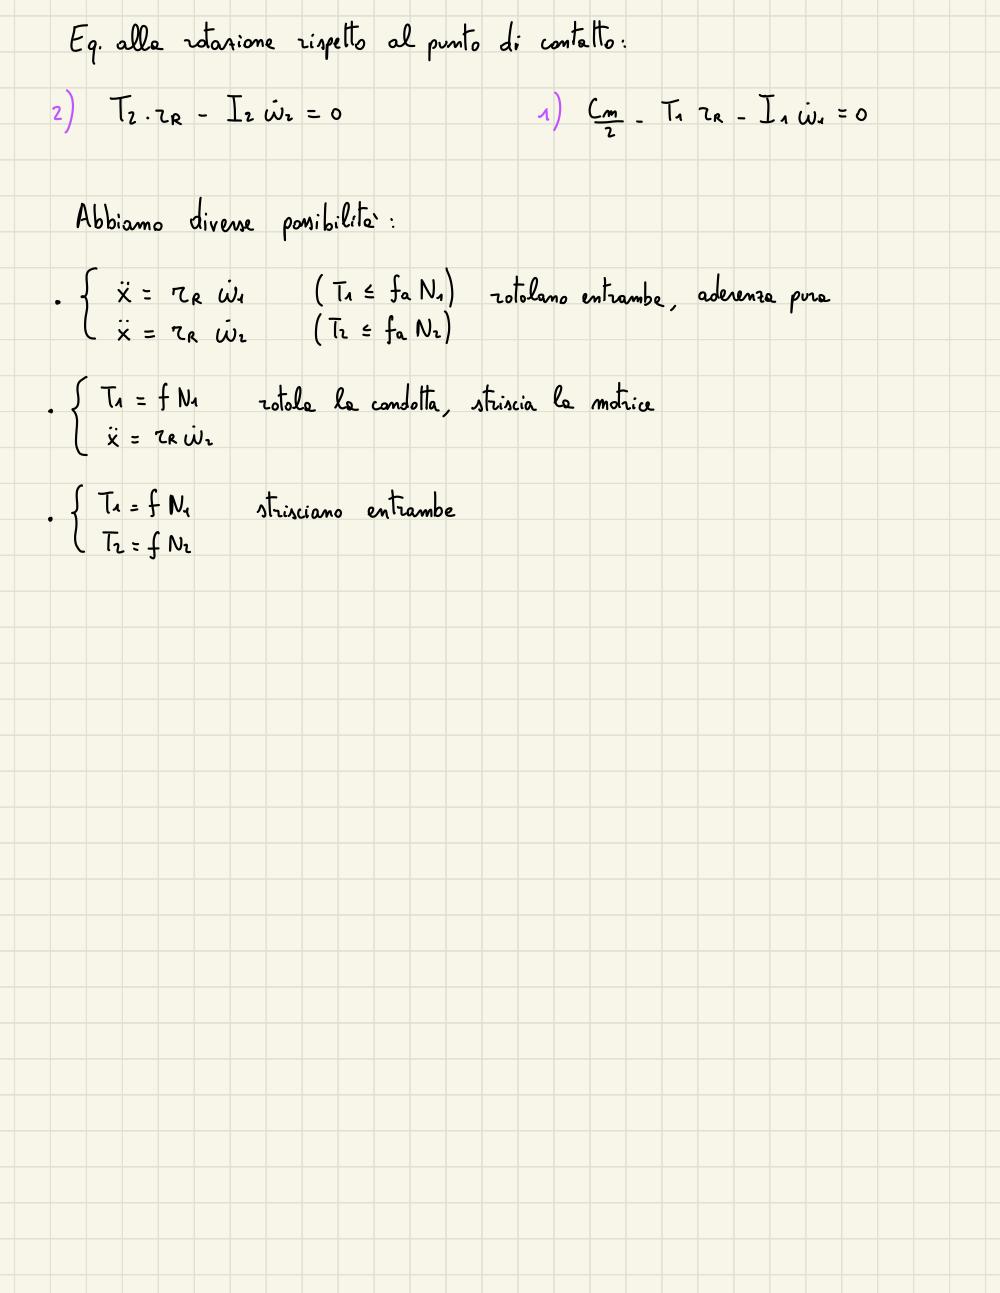 Eq. alla rotazione rispetto al punto di contatto:
2) T₂ · r_R - I₂ ω̇₂ = 0    1) C_m/2 - T₁ r_R - I₁ ω̇₁ = 0
Abbiamo diverse possibilità:
• { ẍ = r_R ω̇₁ (T₁ ≤ f_a N₁) rotolano entrambe, aderenza pura
ẍ = r_R ω̇₂ (T₂ ≤ f_a N₂)
• { T₁ = f N₁ rotola la condotta, striscia la motrice
ẍ = r_R ω̇₂
• { T₁ = f N₁ strisciano entrambe
T₂ = f N₂